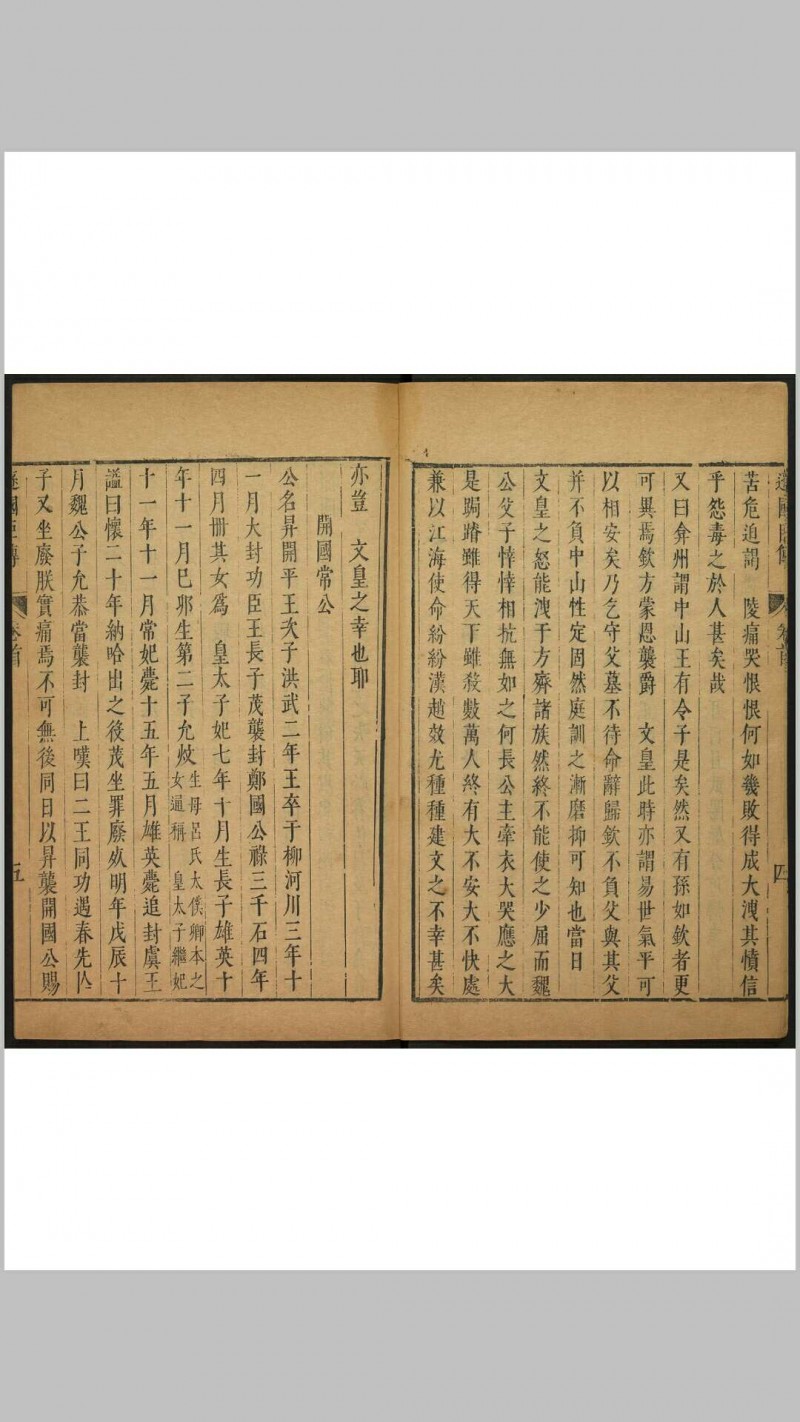 遜國臣傳
卷首
四
苦危迫謁　陵痛哭恨恨何如幾敗得成大洩其憤信
乎怨毒之於人甚矣哉
又曰弇州謂中山王有令子是矣然又有孫如欽者更
可異焉欽方蒙恩襲爵　文皇此時亦謂易世氣平可
以相安矣乃乞守父墓不待命辭歸欽不負父與其父
并不負中山性定固然庭訓之漸磨抑可知也當日
文皇之怒能洩于方齊諸族然終不能使之少屈而魏
公父子悻悻相抗無如之何長公主牽衣大哭應之大
是跼蹐雖得天下雖殺數萬人終有大不安大不快處
兼以江海使命紛紛漠趙效尤種種建文之不幸甚矣
亦豈　文皇之幸也耶
開國常公
公名昇開平王次子洪武二年王卒于柳河川三年十
一月大封功臣王長子茂襲封鄭國公祿三千石四年
四月冊其女爲　皇太子妃七年十月生長子雄英十
年十一月巳夘生第二子允炆生母呂氏太僕卿本之
女逓稱　皇太子繼妃
十一年十一月常妃薨十五年五月雄英薨追封虞王
諡曰懷二十年納哈出之役茂坐罪廢竄明年戊辰十
月魏公子允恭當襲封　上嘆曰二王同功遇春先亾
子又坐廢朕實痛焉不可無後同日以昇襲開國公賜
遜國臣傳
卷首
五